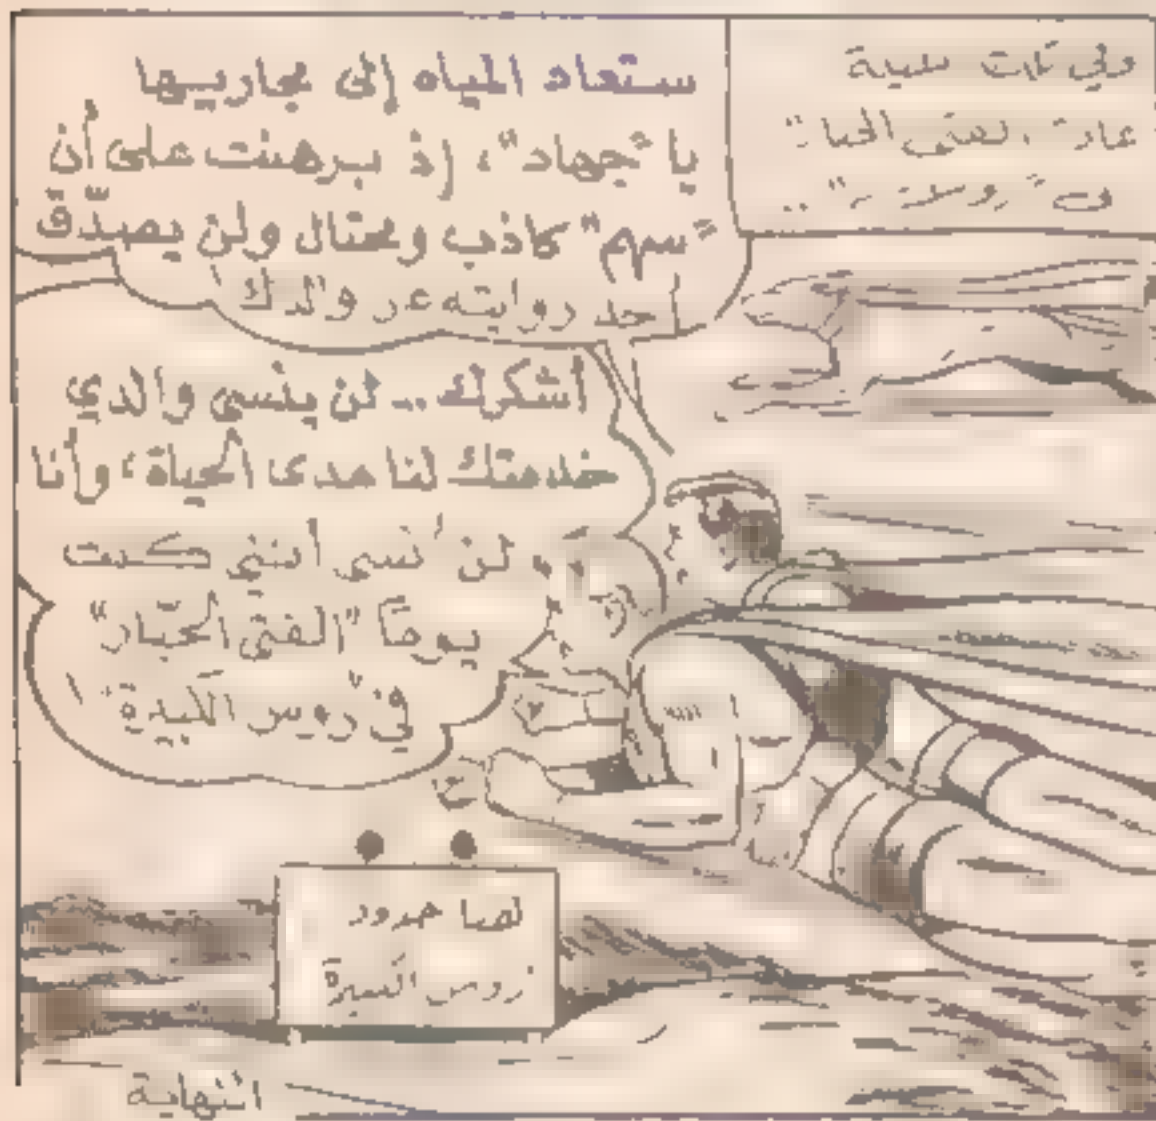 عاد "الفتى الجبار"
ستعاد المياه إلى مجاريها
يا "جهاد"، إذ برهنت على أن
"سهم" كاذب ومحتال ولن يصدّق
احد روايته عن والدك
أشكرك .. لن ينسى والدي
خدمتك لنا مدى الحياة، وأنا
لن أنسى أنني كنت
يومًا "الفتى الجبّار"
في "روس الكبيرة"!
حدود
روس الكبيرة
النهاية